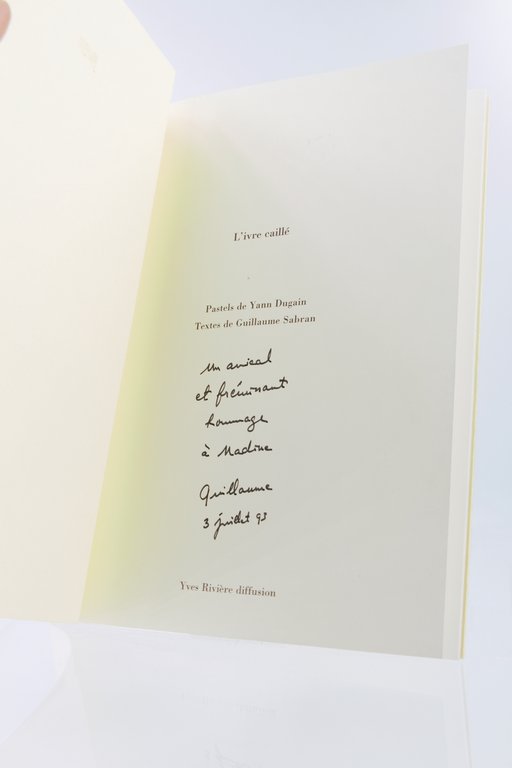 L'ivre caillé
Pastels de Yann Dugain
Textes de Guillaume Sabran
Un amical
et frémissant
hommage
à Nadine
Guillaume
3 juillet 93
Yves Rivière diffusion